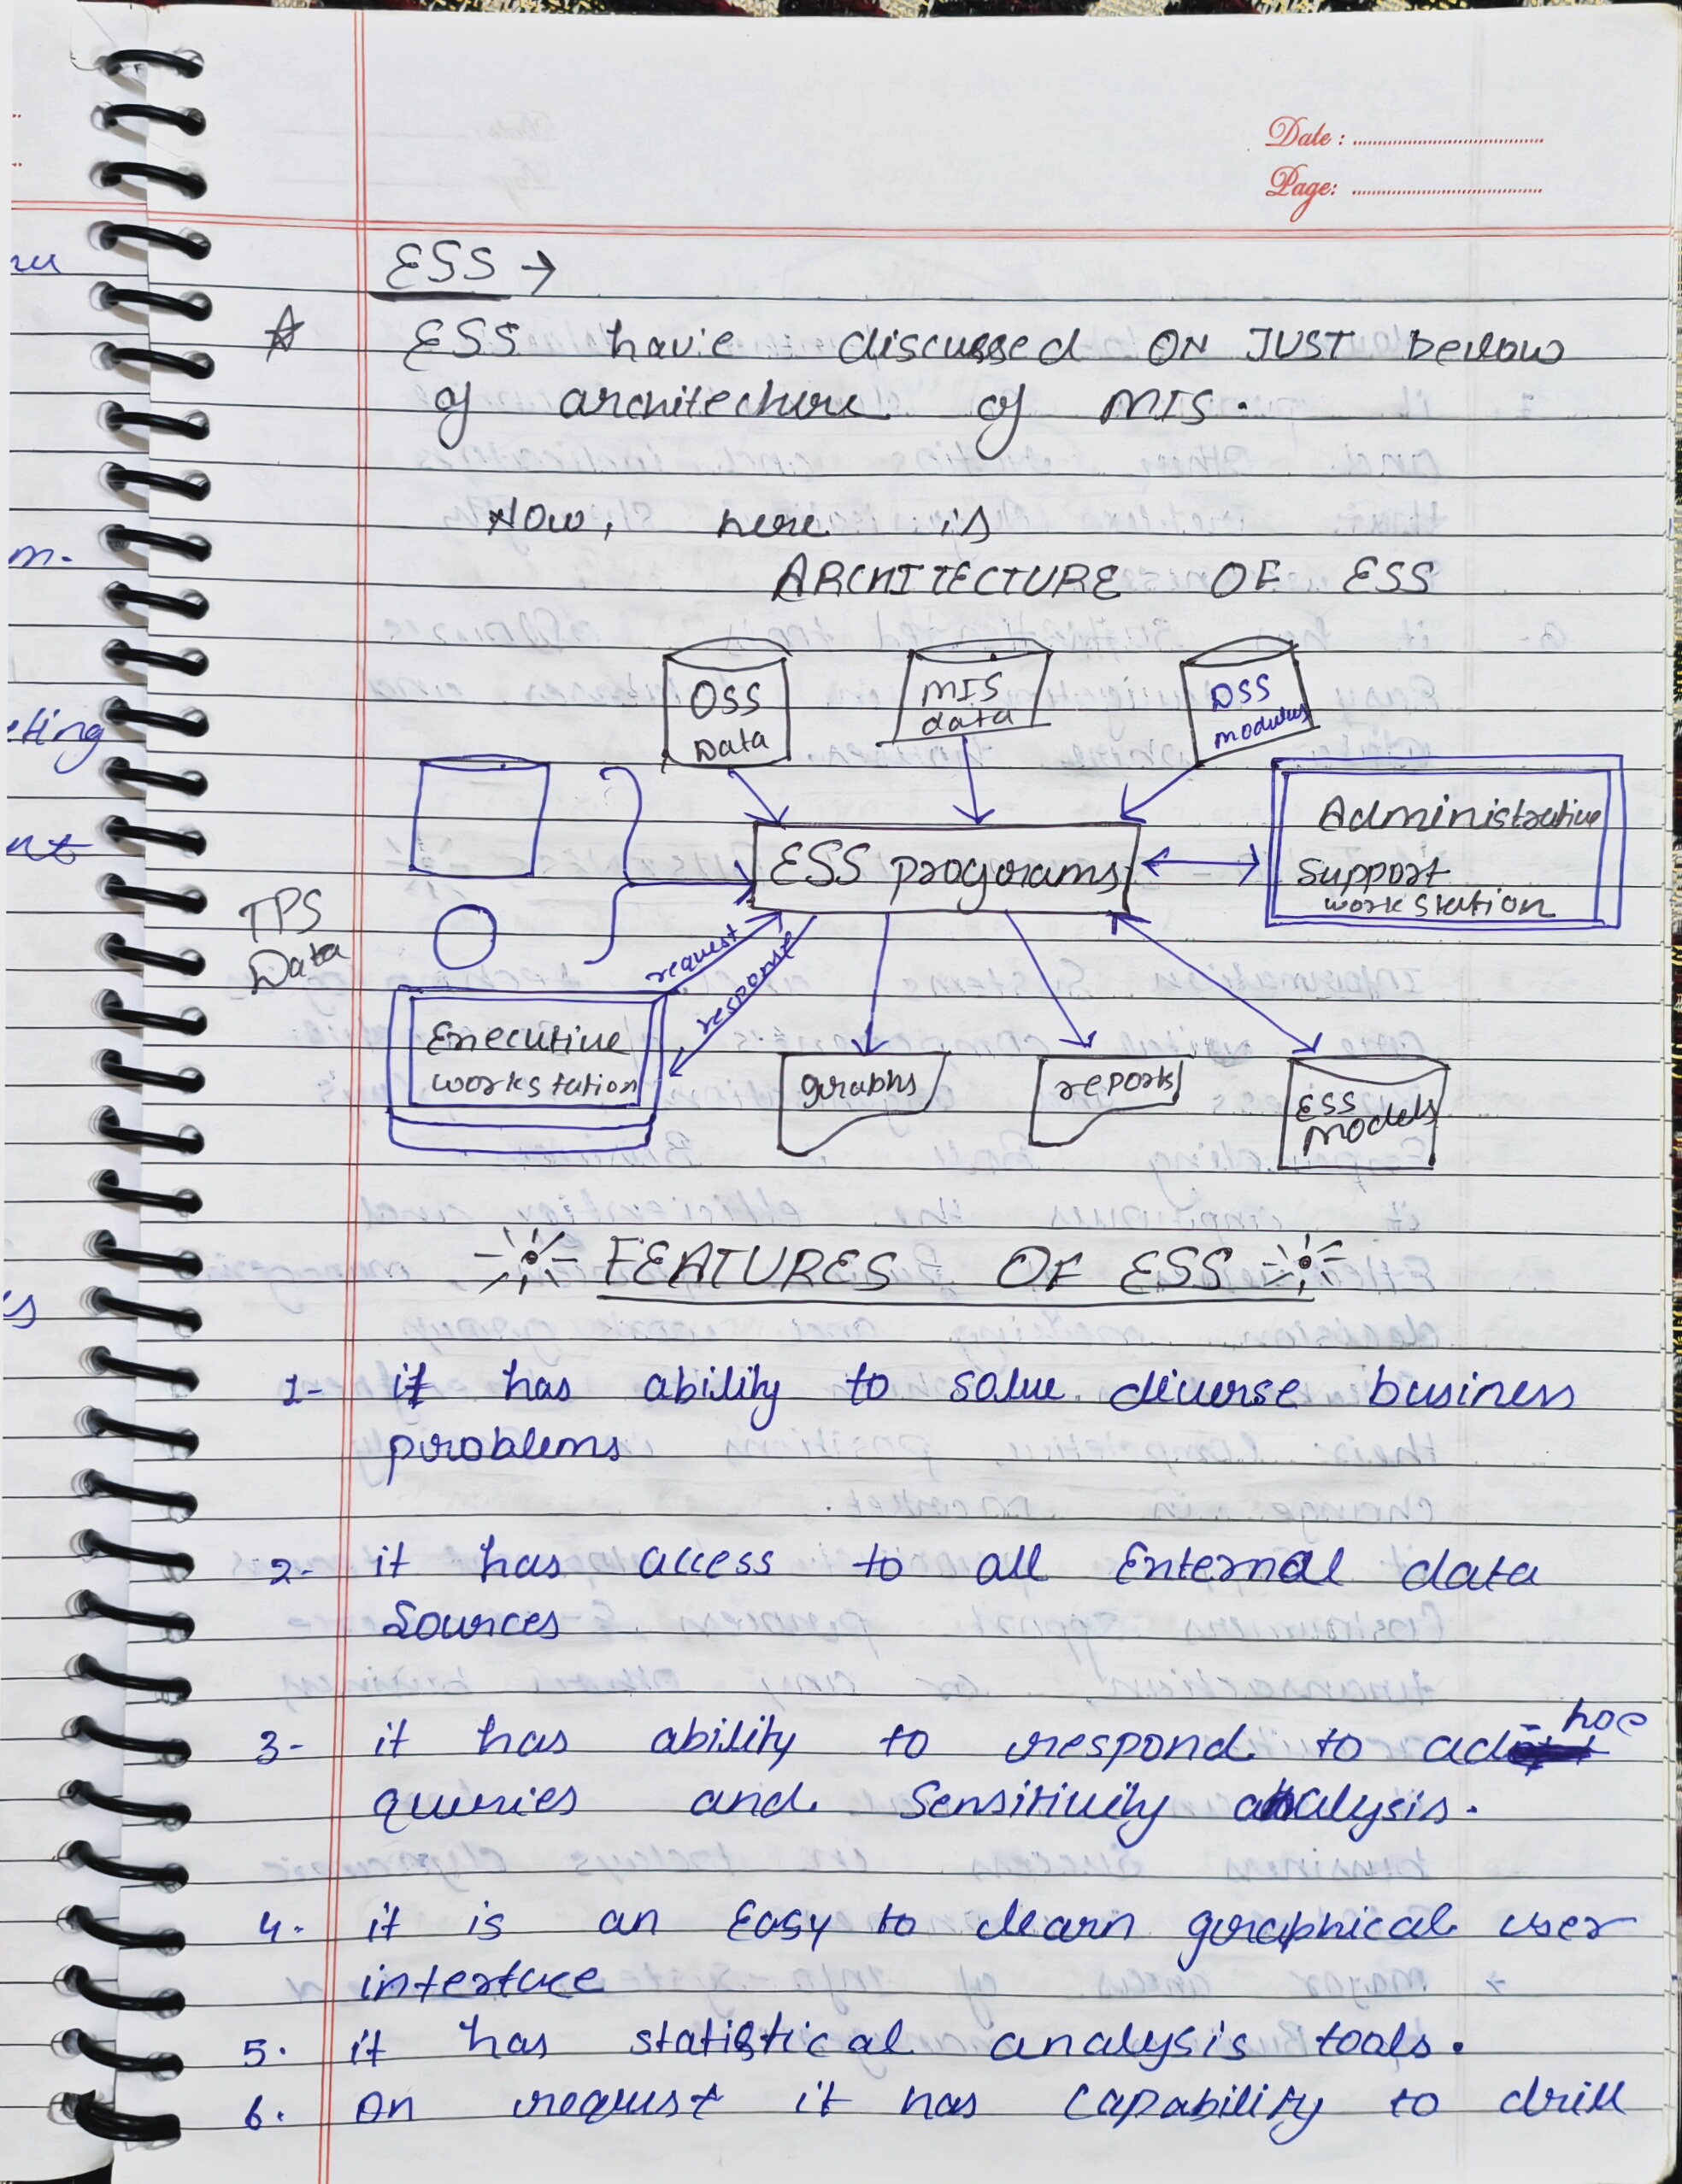 Date :
Page:
ESS →
ESS have discussed ON JUST bellow
of architecture of MIS.
Now, here is
ARCHITECTURE OF ESS
OSS
Data
MIS
data
DSS
modulus
ESS programs
Administrative
Support
work station
TPS
Data
request
response
Executive
workstation
graphs
reports
ESS
Models
FEATURES OF ESS
1- it has ability to solve diverse business
problems
2- it has access to all External data
Sources
3- it has ability to respond to ad-hoc
queries and Sensitivity analysis.
4. it is an Easy to learn graphical user
interface
5. it has statistical analysis tools.
6. On request it has capability to drill
eting
m.